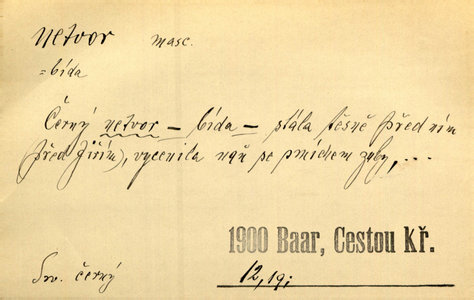 netvor masc.
=bída
Černý netvor – bída – stála těsně před ním
před Jiřím), vycenila naň se smíchem zuby, ...
1900 Baar, Cestou Kř.
Srv. černý 12, 19;